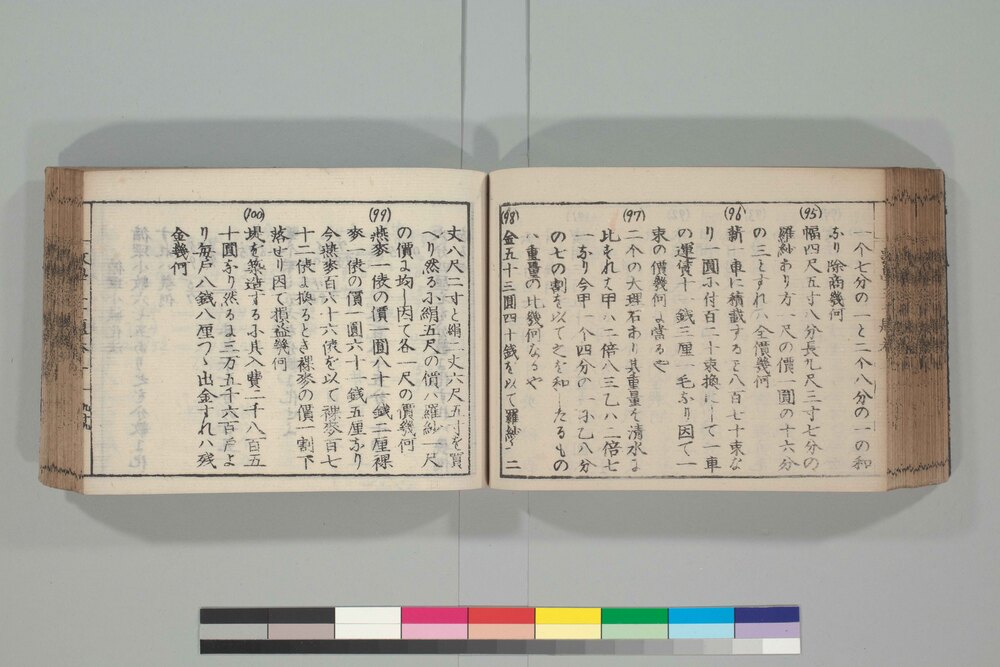 一个七分の一と二个八分の一の和
なり除商幾何
(95)
幅四尺五寸八分長九尺三寸七分の
羅紗あり方一尺の價一圓の十六分
の三とすれハ全價幾何
(96)
薪一車に積載すること八百七十束な
り一圓に付百二十束換にして一車
の運賃十一銭三厘一毛なり因て一
束の價幾何に當るや
(97)
二个の大理石あり其重量を清水に
比それ又甲ハ二倍八三乙ハ二倍七
一なり今甲一个四分の一に乙八分
の七の割を以て之を和したるもの
ハ重量の比幾何なるや
(98)
金五十三圓四十銭を以て羅紗二
丈八尺二寸と絹二丈六尺五寸を買
へり然るに絹五尺の價ハ羅紗一尺
の價に均し因て各一尺の價幾何
(99)
燕麥一俵の價一圓八十銭二厘裸
麥一俵の價一圓六十一銭五厘なり
今燕麥百六十六俵を以て裸麥百七
十二俵に換るとき裸麥の價一割下
落せり因て損益幾何
(100)
堤を築造するに其入費二千八百五
十圓なり然るに三万五千六百戸よ
り毎戸八銭八厘つゝ出金すれハ残
金幾何